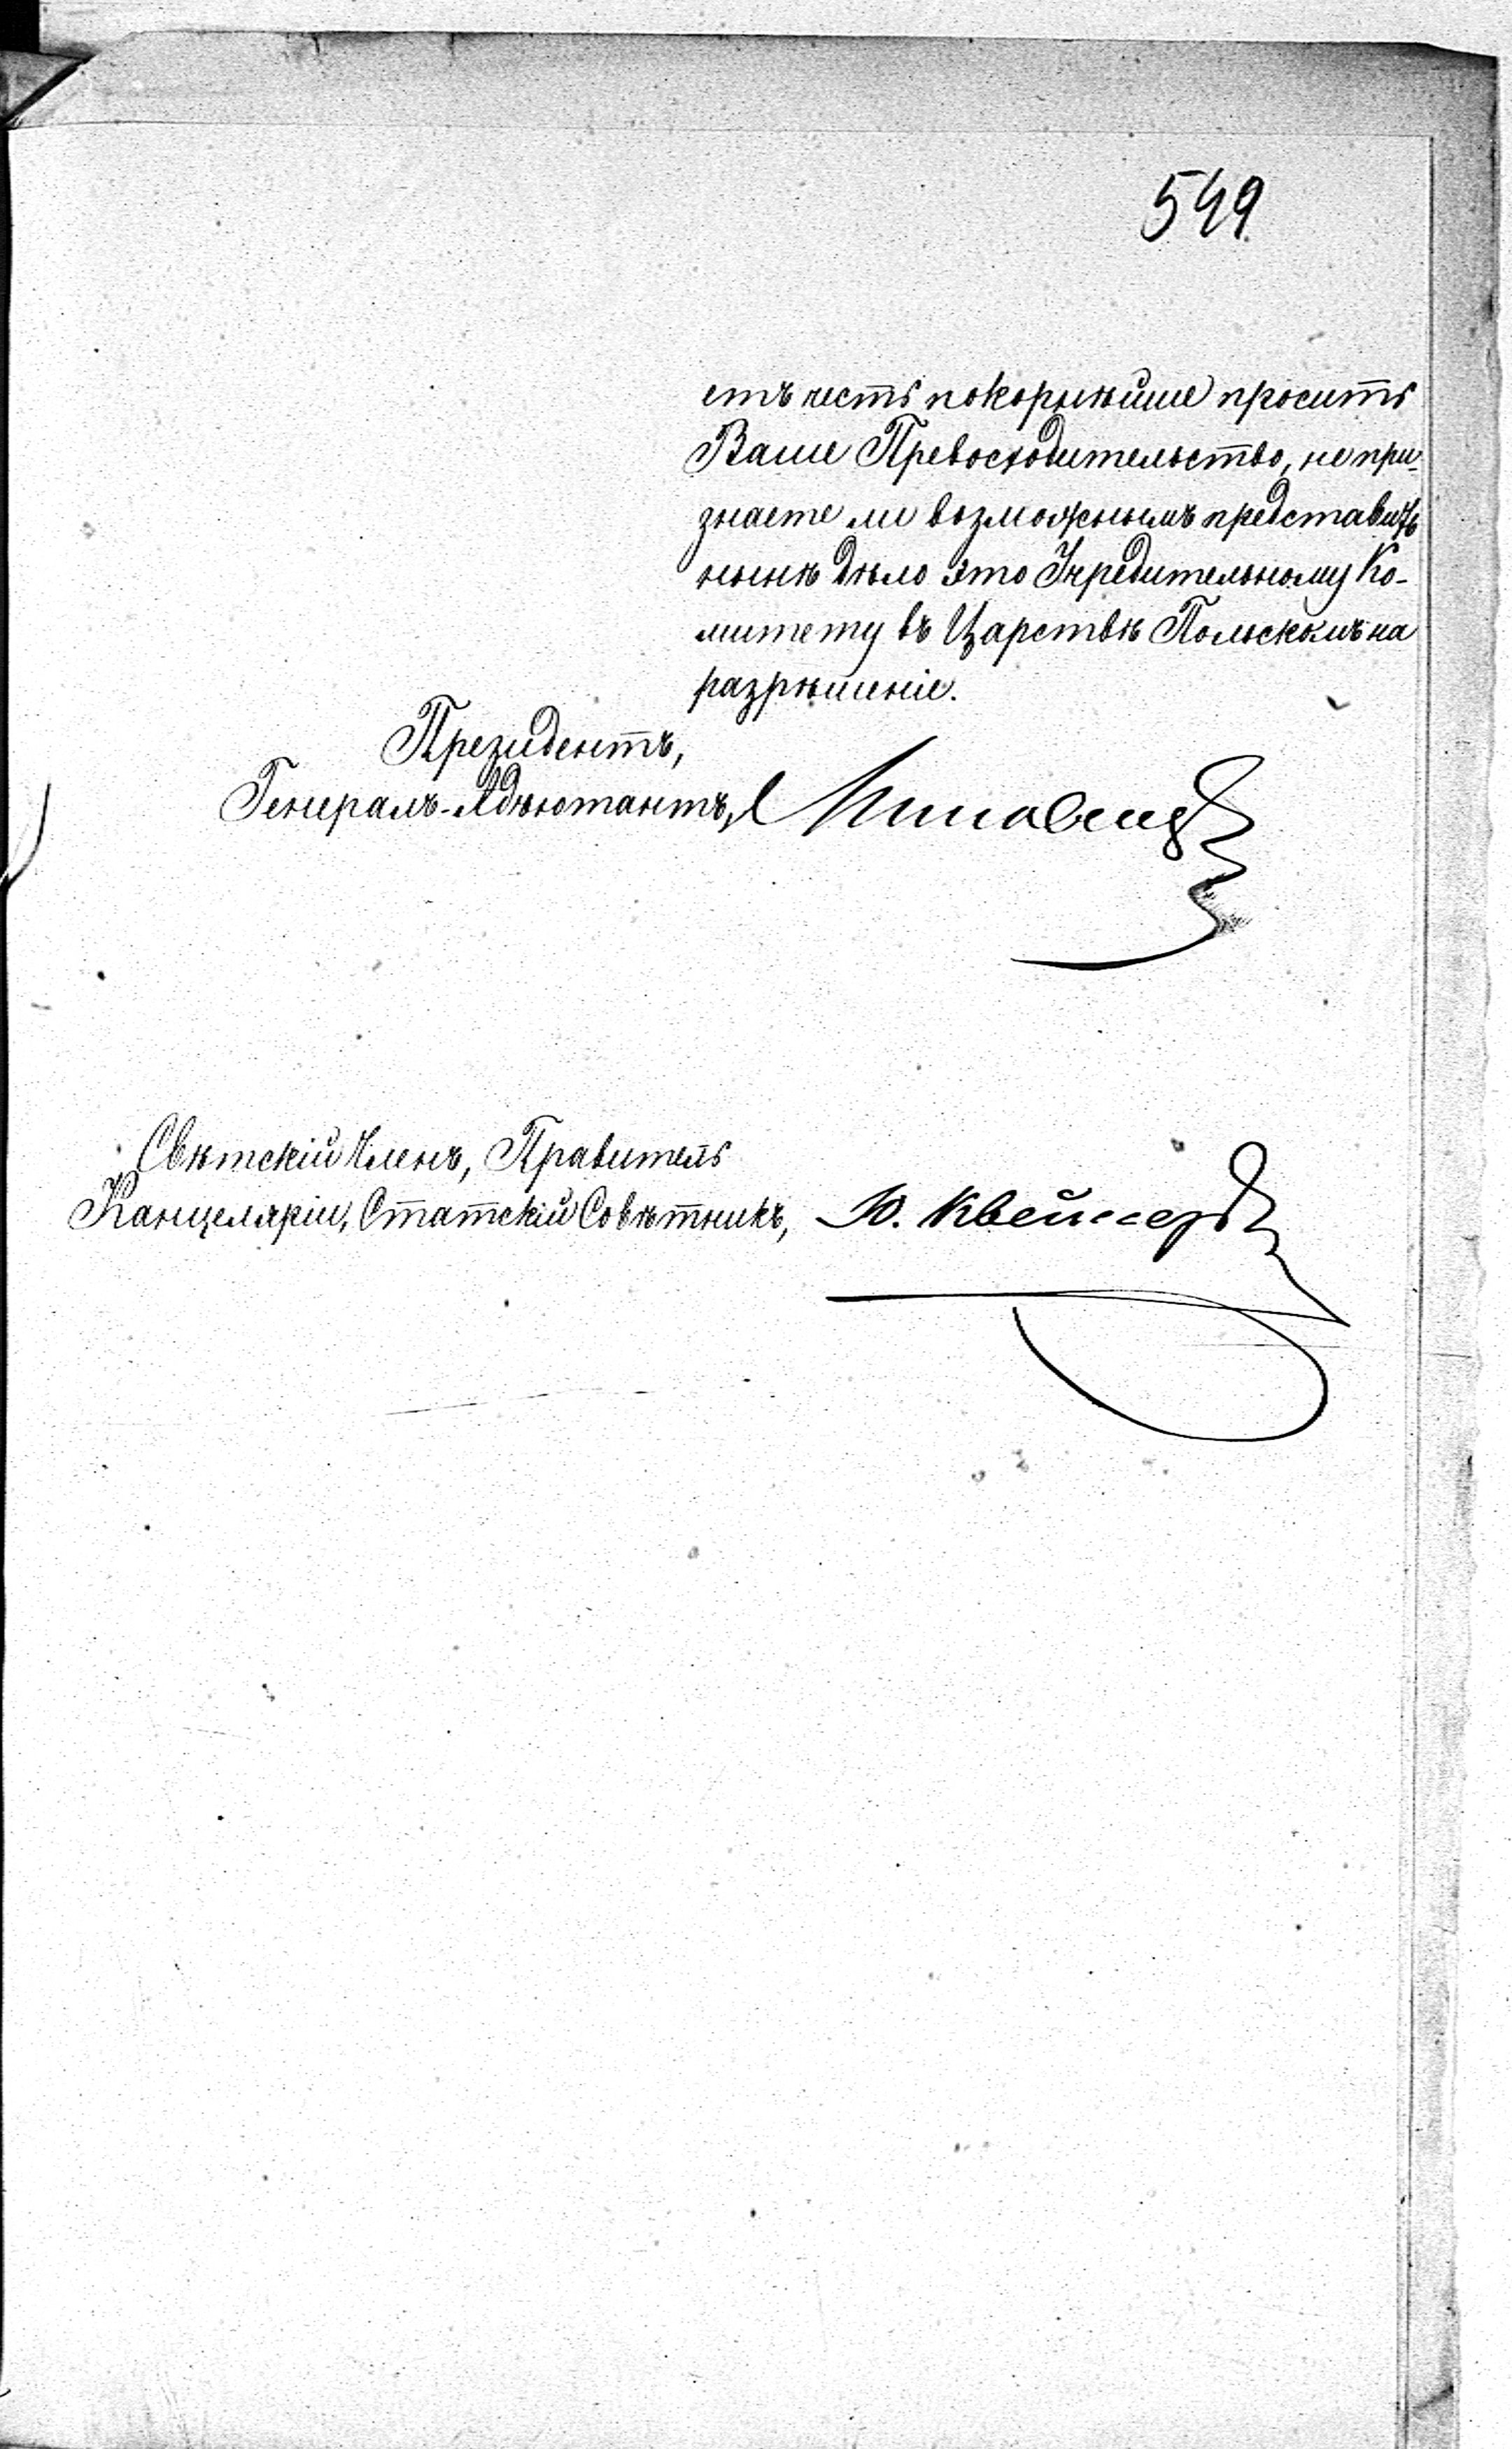 549
етъ честь покорнѣйше просить
Ваше Превосходительство, не при-
знаете ли возможнымъ представить
нынѣ дѣло это Учредительному Ко-
митету въ Царствѣ Польскомъ на
разрѣшеніе.
Президентъ,
Генералъ-Адъютантъ,
Свѣтскій Членъ, Правитель
Канцеляріи, Статскій Совѣтникъ, Ю.